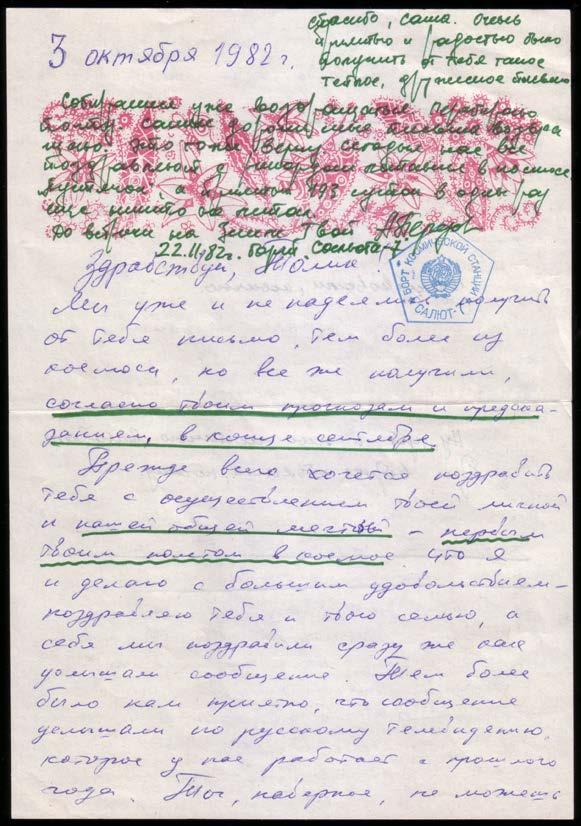 3 октября 1982 г.
Спасибо, Саша. Очень
приятно и радостно было
получить от тебя такое
теплое, дружеское письмо
Собираемся уже возвращаться. Перебираю
почту. Самые дорогие мне письма возвра
щаю. Это тоже верну. Сегодня нас все
поздравляют с
а больше 193 суток в один раз
еще никто не летал.
До встречи на Земле. Твой
22.11.82г. Борт "Салюта-7"
БОРТ КОСМИЧЕСКОЙ СТАНЦИИ
САЛЮТ-7
Здравствуй, Толик
Мы уже и не надеялись получить
от тебя письмо, тем более из
космоса, но все же получили,
согласно твоим прогнозам и предска-
заниям, в конце сентября.
Прежде всего хочется поздравить
тебя с осуществлением твоей личной
и нашей общей мечты – первым
твоим полетом в космос что я
и делаю с большим удовольствием –
поздравляю тебя и твою семью, а
себя мы поздравили сразу же как
услышали сообщение. Тем более
было нам приятно, что сообщение
услышали по русскому телевидению,
которое у нас работает с прошлого
года. Ты, наверное, не можешь